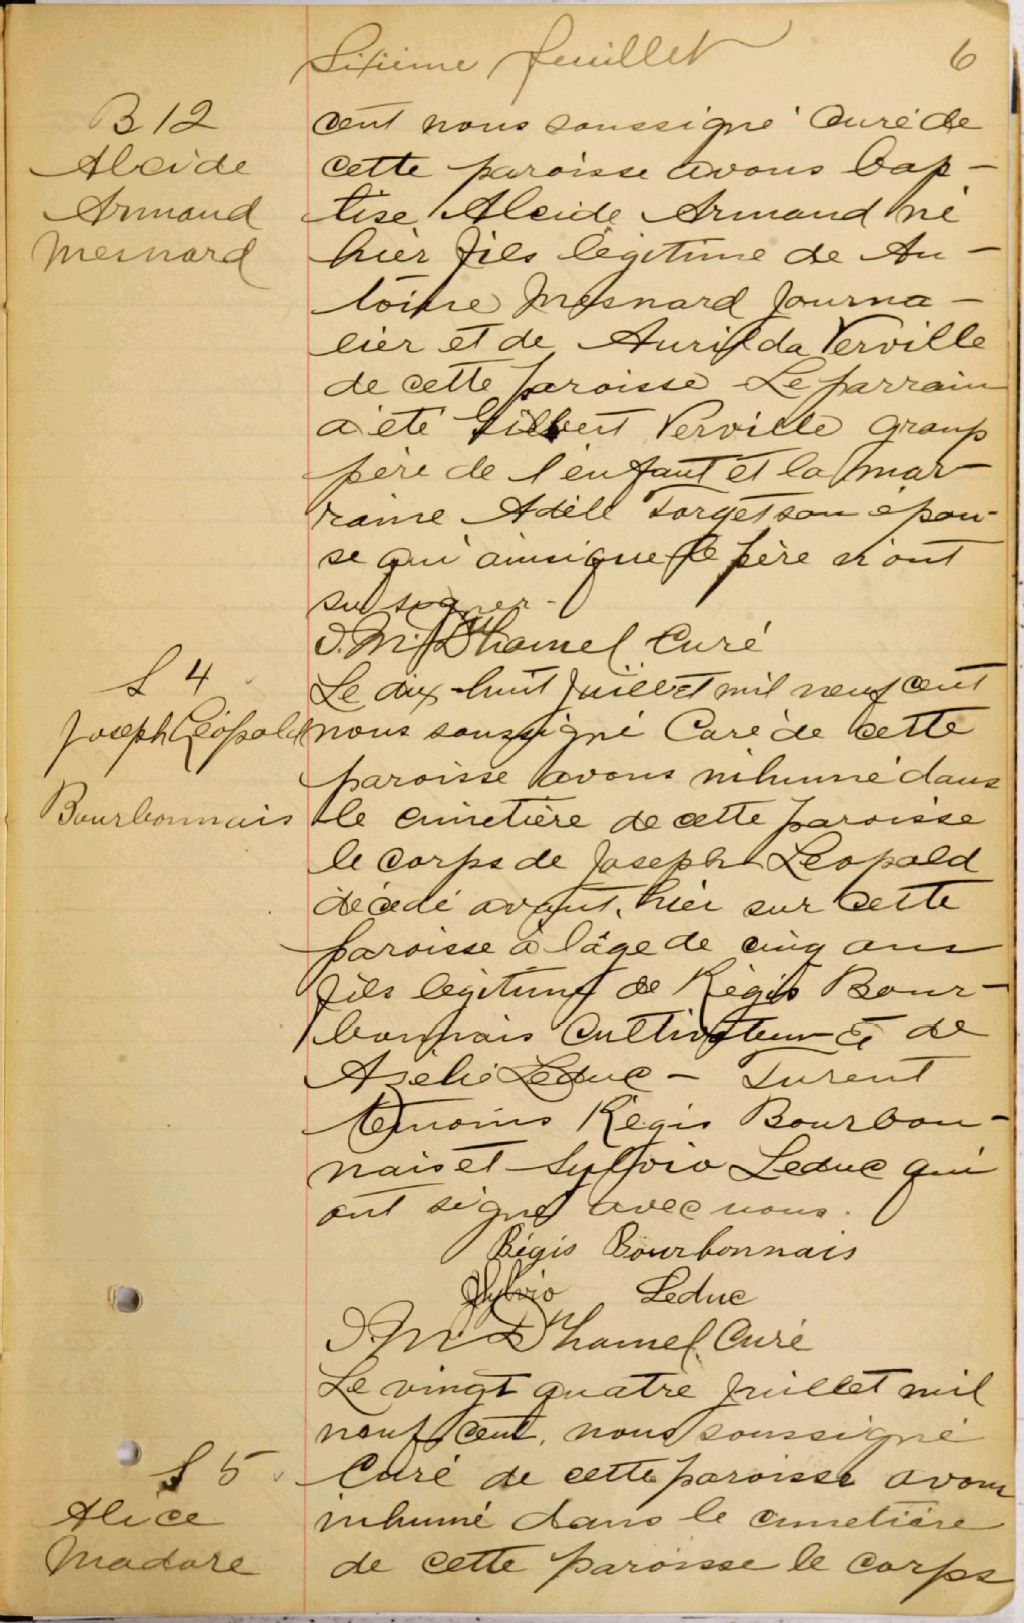 Sixième feuillet 6
B 12
Alcide
Armand
Mesnard
cent nous soussigné Curé de
cette paroisse avons bap-
tisé Alcide Armand né
hier fils légitime de An-
toine Mesnard Journa-
lier et de Aurilda Verville
de cette paroisse Le parrain
a été Gilbert Verville grand
père de l'enfant et la mar-
raine Adèle Forget son épou-
se qui ainsi que le père n'ont
su signer.
J. M. Duhamel Curé
S 4
Joseph Léopold
Bourbonnais
Le dix-huit Juillet mil neuf cent
nous soussigné Curé de cette
paroisse avons inhumé dans
le cimetière de cette paroisse
le corps de Joseph Léopold
décédé avant-hier sur cette
paroisse à l'âge de cinq ans
fils légitime de Régis Bour-
bonnais Cultivateur & de
Azélie Leduc - Furent
témoins Régis Bourbon-
nais et Sylvio Leduc qui
ont signé avec nous.
Régis Bourbonnais
Sylvio Leduc
J. M. Duhamel Curé
Le vingt quatre Juillet mil
neuf cent, nous soussigné
S 5
Alice
Madore
Curé de cette paroisse avons
inhumé dans le cimetière
de cette paroisse le corps